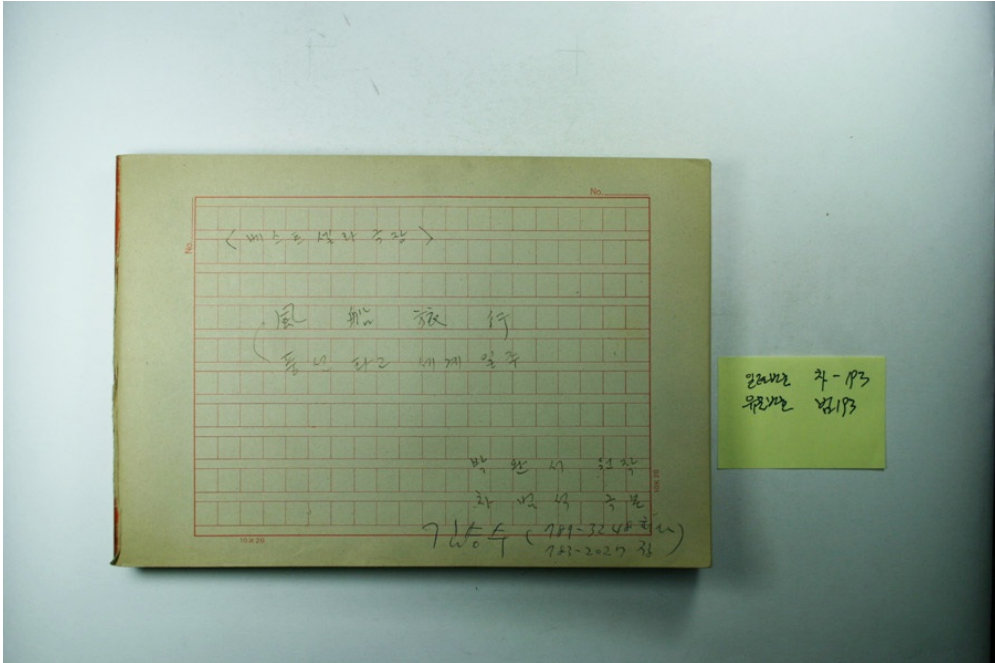 No.
No.
〈베스트셀라 극장〉
風船旅行
풍선 타고 세계 일주
박완서 원작
차범석 극본
김승수 (789-3248 회사
783-2027 집)
10×20
10×20
일련번호 차-193
유물번호 범193